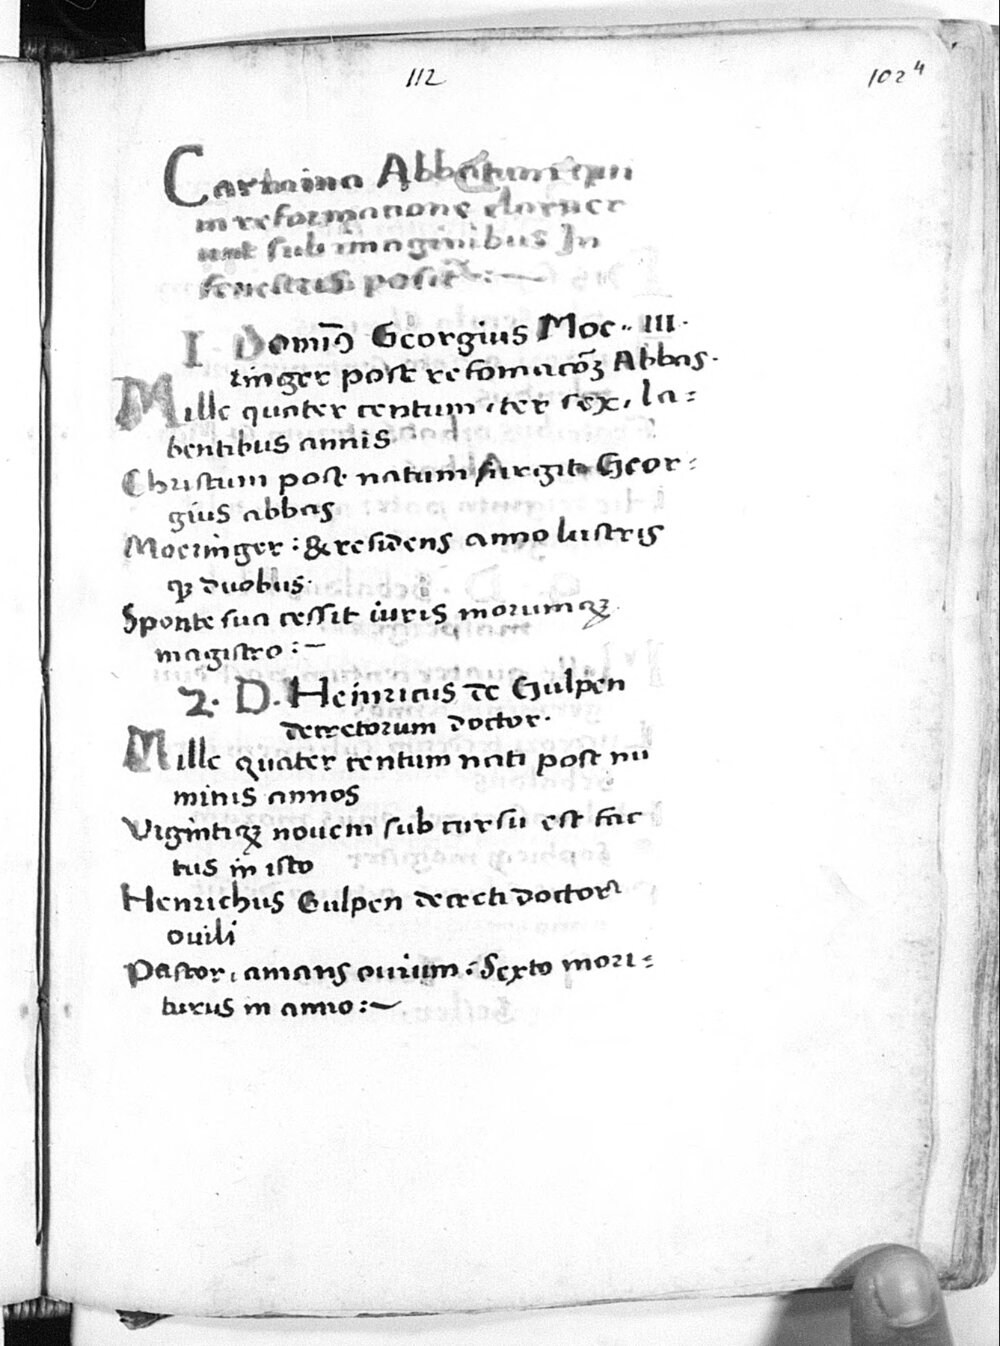 112
102 4
Carmina Abbatum qui
in reformatione claruer
unt sub imaginibus In
fenestris posit̃ :~
I Domiꝰ Georgius Moe·· III·
tinger post refomacõꝫ Abbas·
Mille quater centum, ter sex, la=
bentibus annis
Christum post natum surgit Geor=
gius abbas
Moeringer : & residens anno lustris
qꝫ duobus·
Sponte sua cessit iuris morumqꝫ
magistro :~
2· D. Heinricus de Gulpen
decretorum doctor·
Mille quater centum nati post nu
minis annos
Vigintiqꝫ novem sub cursu est fac
tus in isto
Henrichus Gulpen decreti doctor
ovili
Pastor, amans ovium : Sexto mori=
turus in anno :~